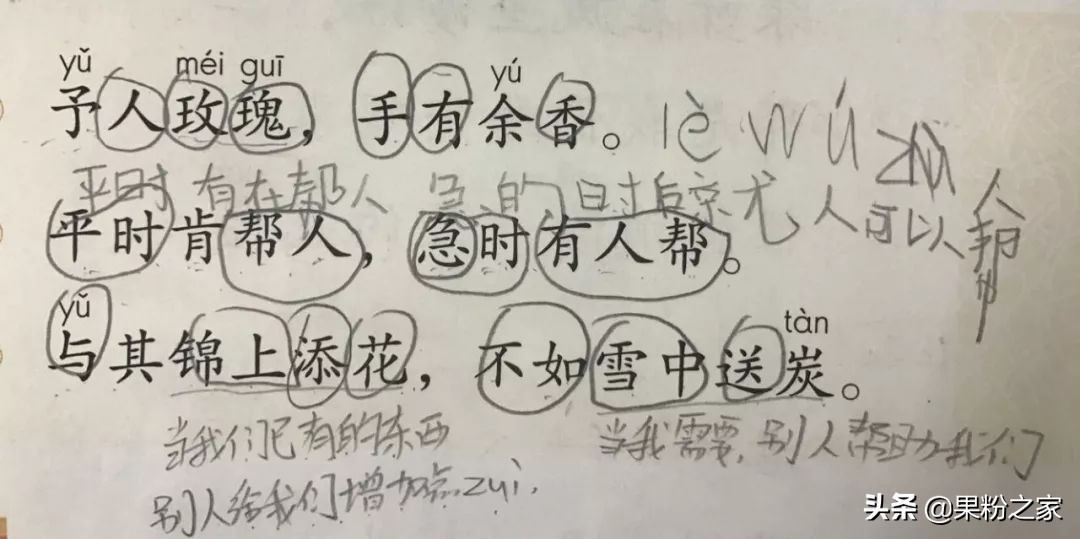 yǔ méi guī yú
予人玫瑰，手有余香。
lè wú
平时 有在帮人 急的 日时后 尤 人可以人帮
平时肯帮人，急时有人帮。
yǔ tàn
与其锦上添花，不如雪中送炭。
当我们已有的东西 当我需要，别人帮助我们
别人给我们增加点zuì.
头条 @果粉之家